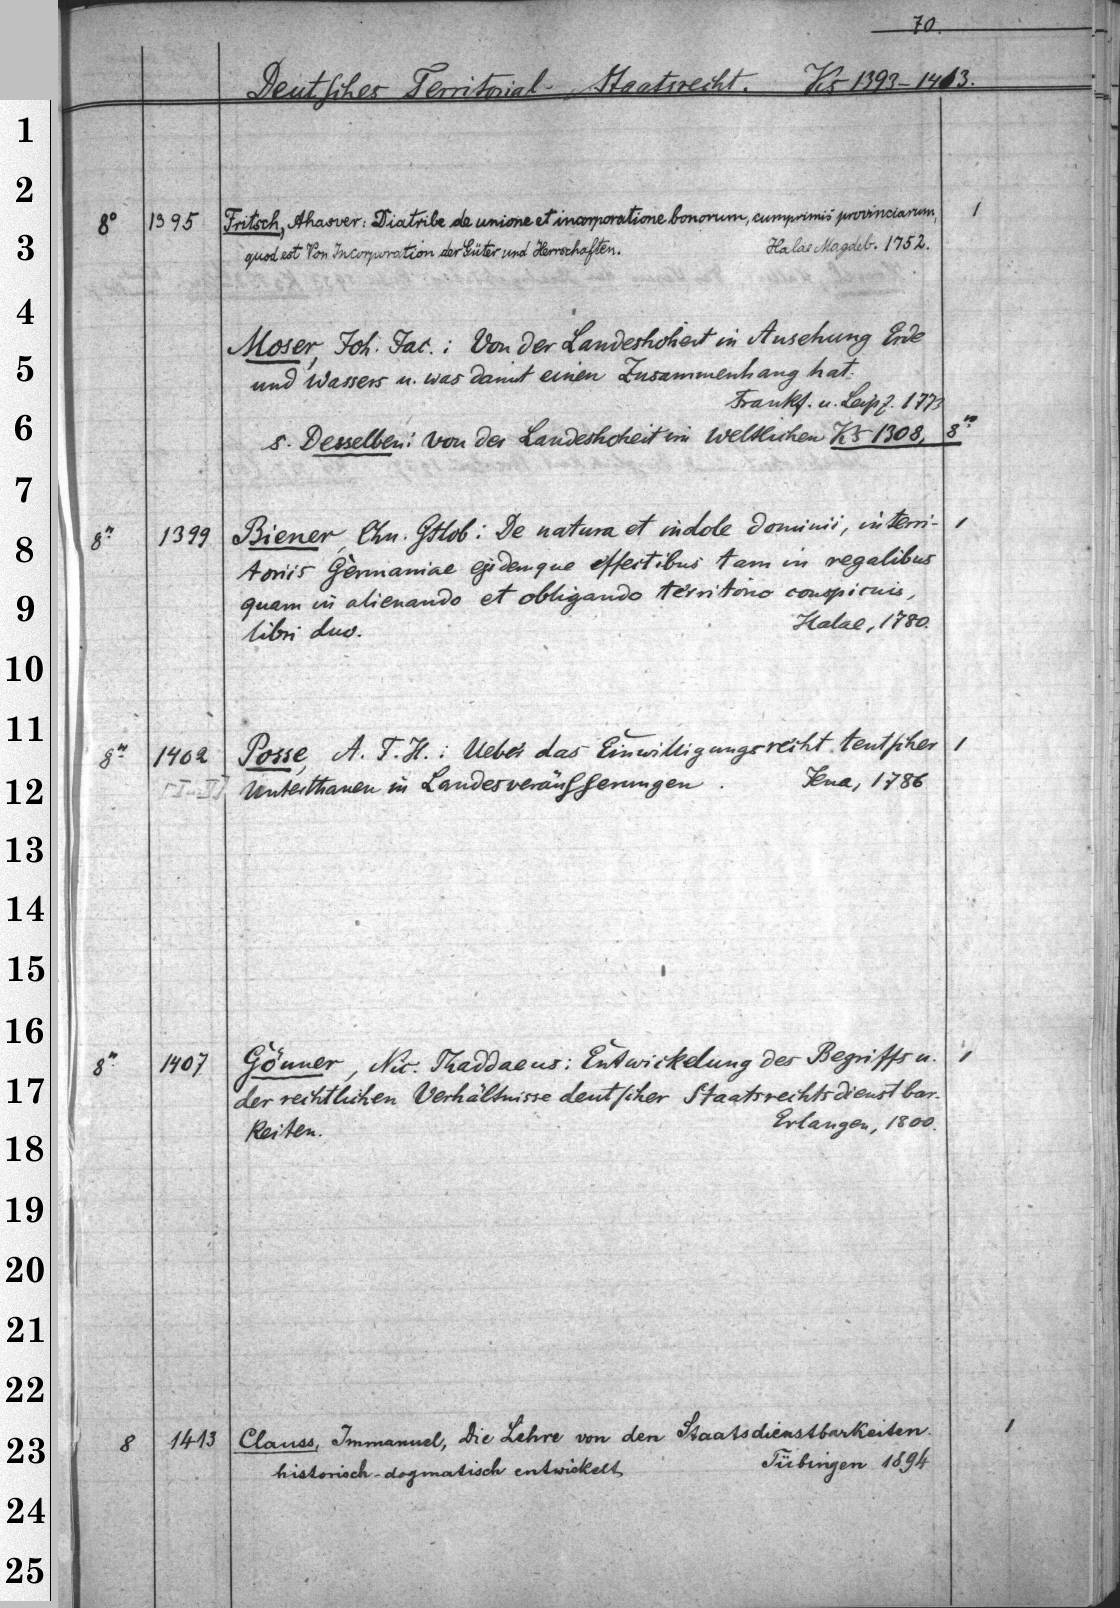 70.
Deutsches Territorial-Staatsrecht. Ks 1393-1413.
1
2
8° 1395 Fritsch, Ahasver: Diatribe de unione et incorporatione bonorum, cumprimis provinciarum, 1
3 quod est Von Incorporation der Güter und Herrschaften. Halae Magdeb. 1752.
4
Moser, Joh. Jac.: Von der Landeshoheit in Ansehung Erde
5 und Wassers u. was damit einen Zusammenhang hat.
Frankf. u. Leipz. 1773
6 s. Desselben: Von der Landeshoheit im Weltlichen Ks 1308, 8°
7
8° 1399 Biener, Chn. Gttlob: De natura et indole dominii, in terri- 1
8 toriis Germaniae ejidemque effectibus tam in regalibus
9 quam in alienando et obligando territorio conspicuis,
libri duo. Halae, 1780.
10
11
8° 1402 Posse, A. F. H.: Ueber das Einwilligungsrecht teutscher 1
12 [I-II] Unterthanen in Landesveräusserungen. Jena, 1786
13
14
15
16
8° 1407 Gönner, Nic. Thaddaeus: Entwickelung des Begriffs u. 1
17 der rechtlichen Verhältnisse deutscher Staatsrechtsdienstbar-
18 keiten. Erlangen, 1800.
19
20
21
22
8 1413 Clauss, Immanuel, Die Lehre von den Staatsdienstbarkeiten. 1
23 historisch-dogmatisch entwickelt Tübingen 1894
24
25